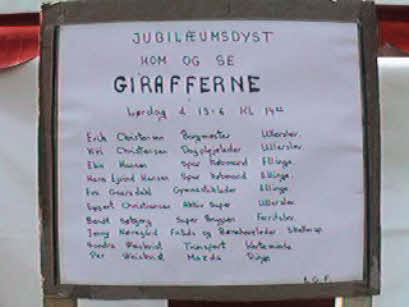 JUBILÆUMSDYST
KOM OG SE
GIRAFFERNE
Lørdag d 13-6 Kl 14
Erik Christensen Borgmester Ullerslev.
Christensen Dagplejeleder Ullerslev.
Hansen Spar Købmand Ellinge.
Hans Ejvind Hansen Spar Købmand Ellinge.
Eva Gymnastikleder Ellinge.
Egert Christiansen Aktiv Super Ullerslev.
Bendt Super Brugsen Ferritslev.
Jenny Nørregård Fritids og Børnehaveleder Skellerup
Transport Kerteminde
Per Mazda
L.G.F.